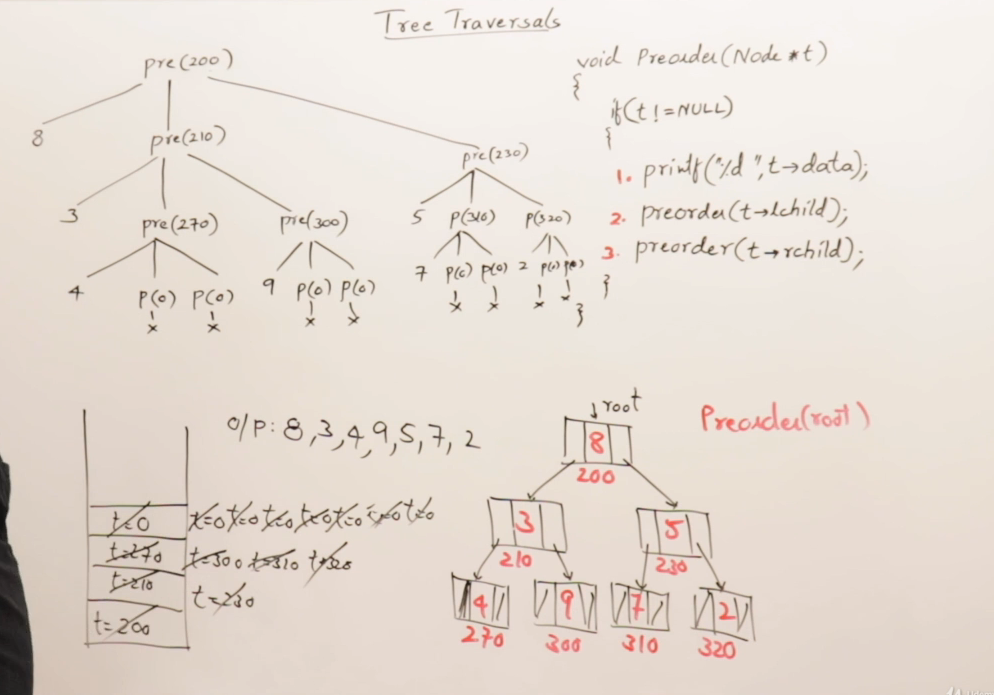 Tree Traversals
pre(200)
8
pre(210)
pre(230)
3
pre(270)
pre(300)
5
p(310)
p(320)
4
p(0) p(0)
9
p(0) p(0)
7
p(0) p(0)
2
p(0) p(0)
x x x x x x x x
void Preorder(Node *t)
{
if(t != NULL)
{
1. printf("%d ",t→data);
2. preorder(t→lchild);
3. preorder(t→rchild);
}
}
O/P: 8,3,4,9,5,7,2
t=0 t=0 t=0 t=0 t=0 t=0 t=0 t=0
t=270 t=300 t=310 t=320
t=210 t=230
t=200
root
Preorder(root)
8
200
3
5
210
230
4
9
7
2
270
300
310
320